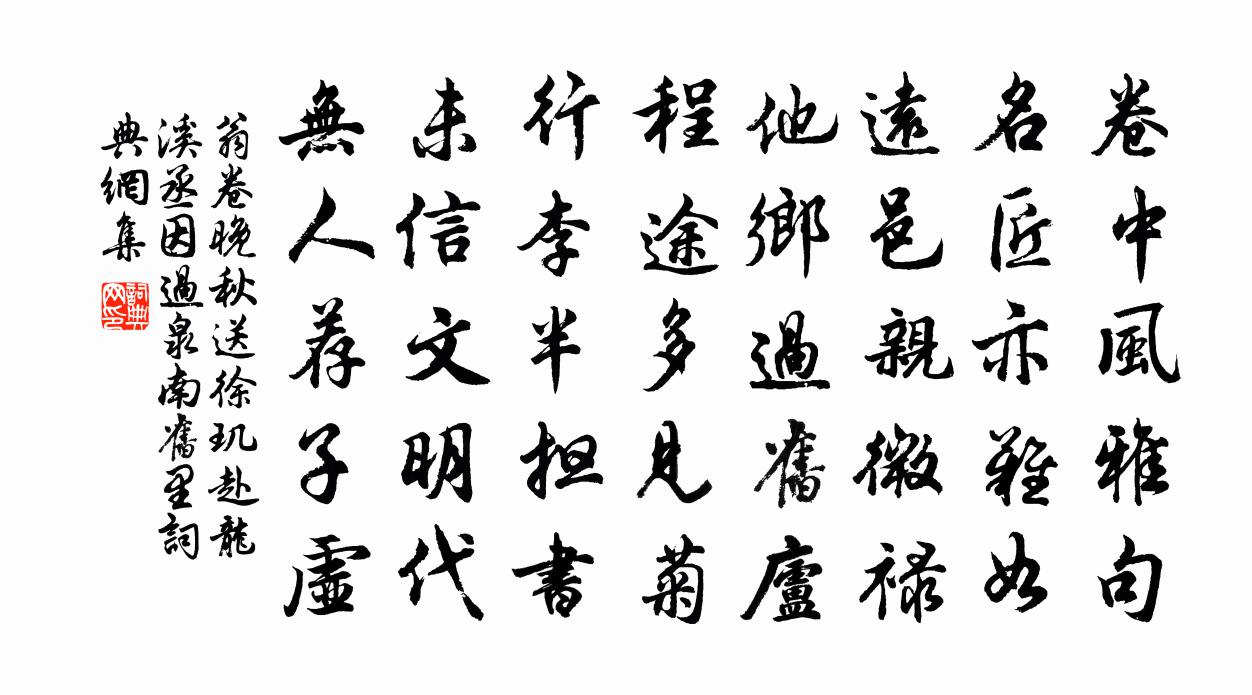 卷中風雅句
名匠亦難如
遠邑親微祿
他鄉過舊廬
程途多見菊
行李半担書
未信文明代
無人荐子虛
翁卷晚秋送徐玑赴龍
溪丞因過泉南舊里詞
典網集
詞典网印